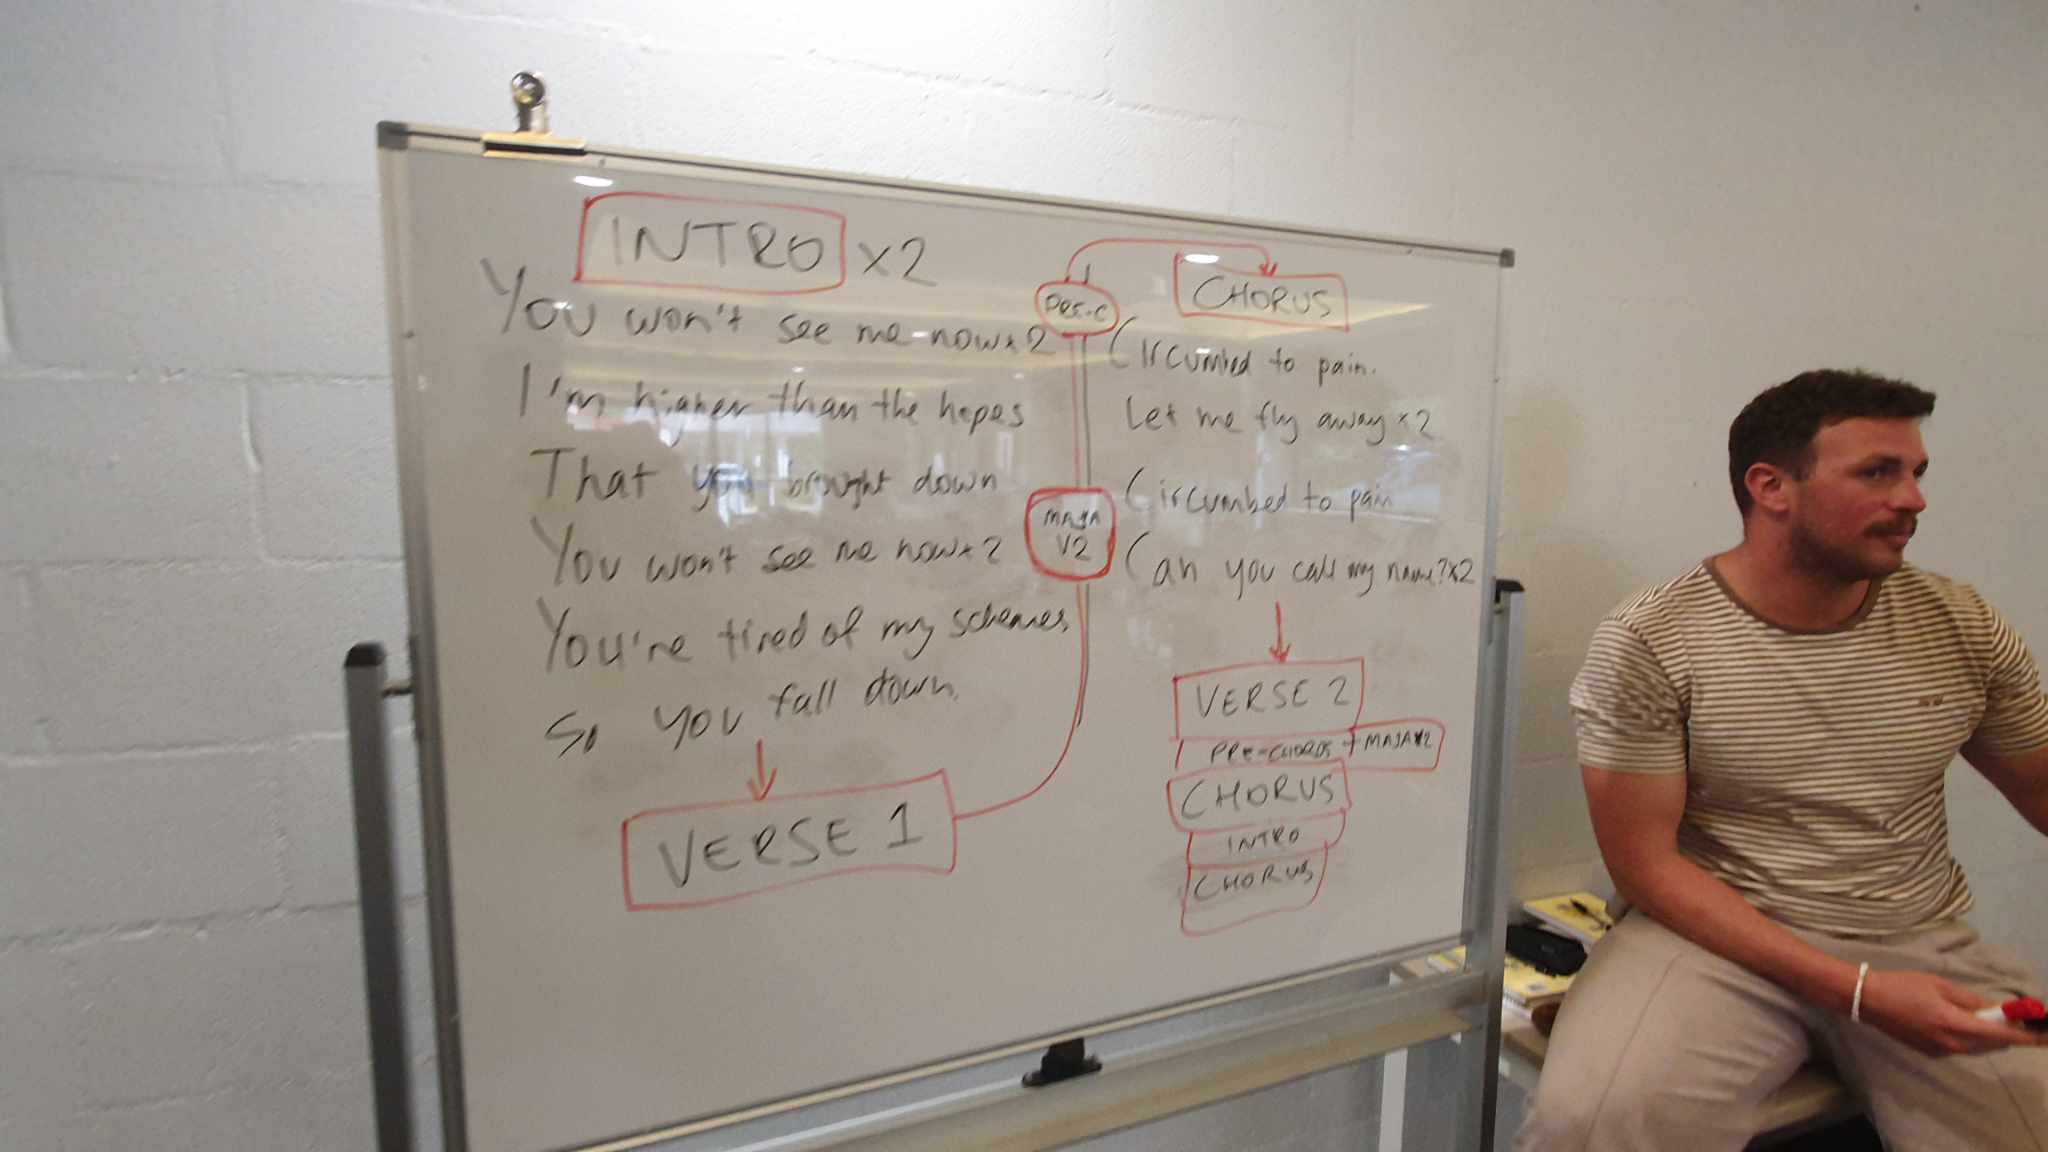 INTRO x2
You won't see me now x2
I'm higher than the hopes
That you brought down
You won't see me now x2
You're tired of my schemes
So you fall down.
VERSE 1
PRE-C
MAJA
V2
CHORUS
Circumbed to pain.
Let me fly away x2
Circumbed to pain
Can you call my name? x2
VERSE 2
PRE-CHORUS + MAJA x2
CHORUS
INTRO
CHORUS